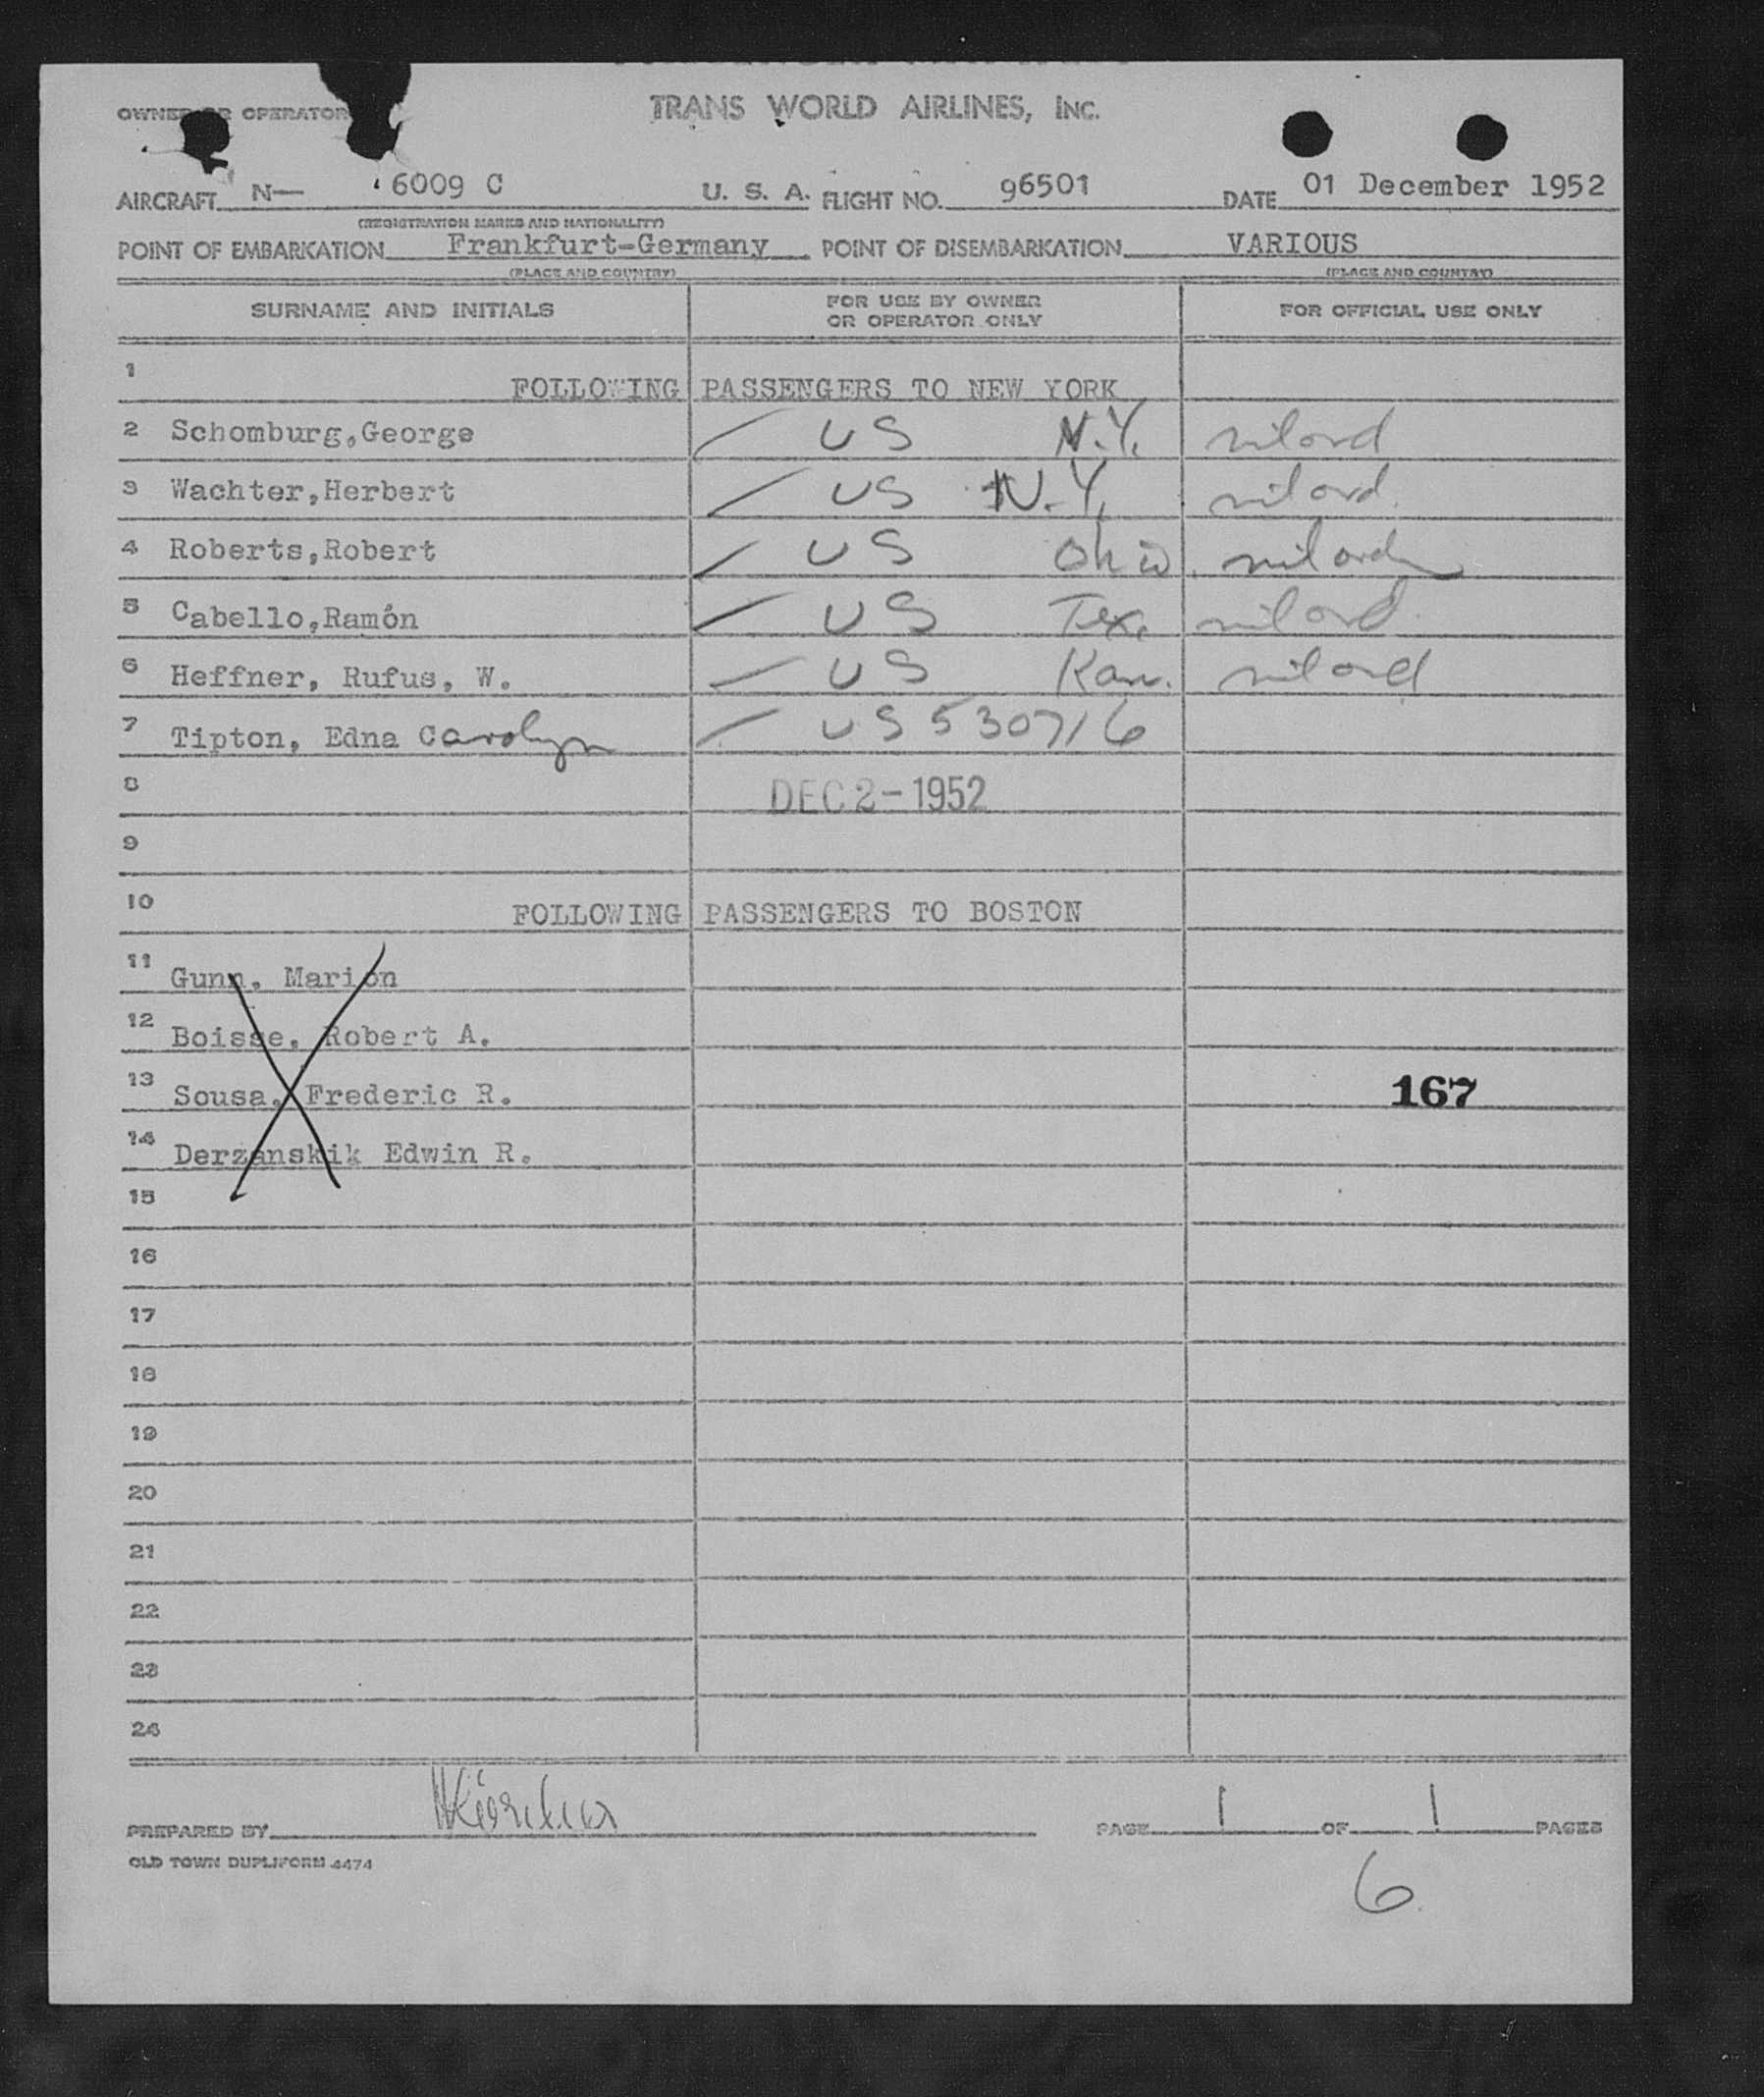 OWNER OR OPERATOR TRANS WORLD AIRLINES, INC.
AIRCRAFT N— 6009 C U. S. A. FLIGHT NO. 96501 DATE 01 December 1952
(REGISTRATION MARKS AND NATIONALITY)
POINT OF EMBARKATION Frankfurt-Germany POINT OF DISEMBARKATION VARIOUS
(PLACE AND COUNTRY) (PLACE AND COUNTRY)
SURNAME AND INITIALS FOR USE BY OWNER OR OPERATOR ONLY FOR OFFICIAL USE ONLY
1 FOLLOWING PASSENGERS TO NEW YORK
2 Schomburg,George US N.Y. mil ord
3 Wachter,Herbert US N.Y. mil ord.
4 Roberts,Robert US Ohio mil ord
5 Cabello,Ramón US Tex. mil ord.
6 Heffner, Rufus, W. US Kan. mil ord
7 Tipton, Edna Carolyn US 530716
8 DEC 2-1952
9
10 FOLLOWING PASSENGERS TO BOSTON
11 Gunn, Marion
12 Boisse, Robert A.
13 Sousa, Frederic R. 167
14 Derzanskik Edwin R.
15
16
17
18
19
20
21
22
23
24
PREPARED BY PAGE 1 OF 1 PAGES
OLD TOWN DUPLIFORM 4474
6